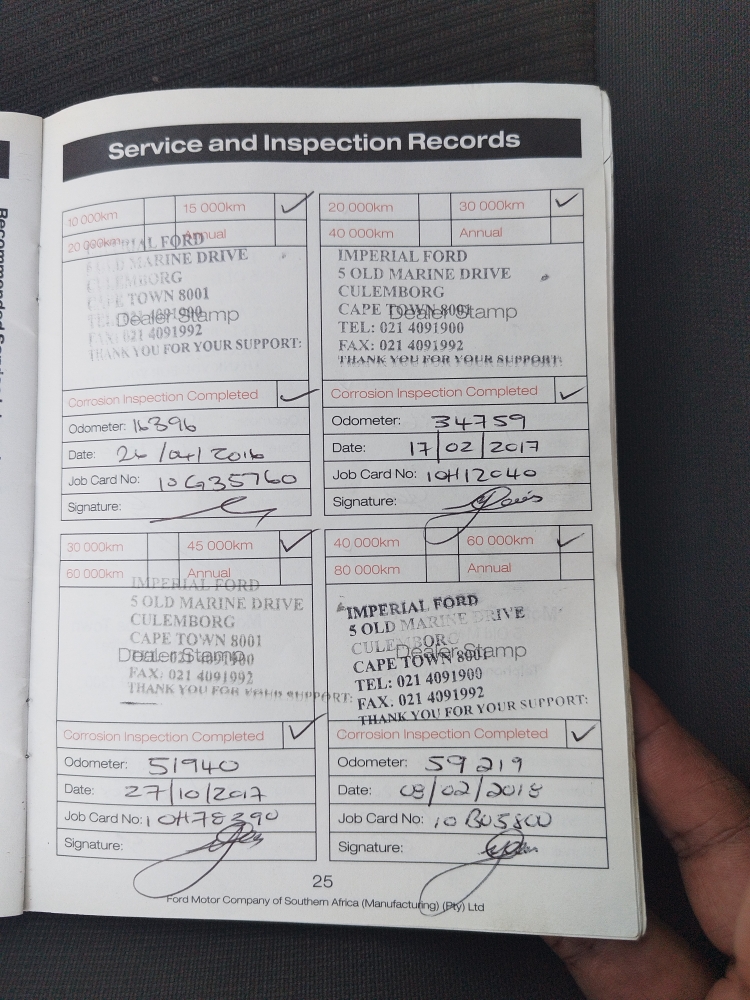 Service and Inspection Records
10 000km 15 000km ✓
20 000km Annual
IMPERIAL FORD
5 OLD MARINE DRIVE
CULEMBORG
CAPE TOWN 8001
Dealer Stamp
TEL: 021 4091900
FAX: 021 4091992
THANK YOU FOR YOUR SUPPORT:
Corrosion Inspection Completed ✓
Odometer: 16396
Date: 26/04/2016
Job Card No: 10G35760
Signature:
20 000km 30 000km ✓
40 000km Annual
IMPERIAL FORD
5 OLD MARINE DRIVE
CULEMBORG
CAPE TOWN 8001
Dealer Stamp
TEL: 021 4091900
FAX: 021 4091992
THANK YOU FOR YOUR SUPPORT:
Corrosion Inspection Completed ✓
Odometer: 34759
Date: 17/02/2017
Job Card No: 10H12040
Signature:
30 000km 45 000km ✓
60 000km Annual
IMPERIAL FORD
5 OLD MARINE DRIVE
CULEMBORG
CAPE TOWN 8001
Dealer Stamp
TEL: 021 4091900
FAX: 021 4091992
THANK YOU FOR YOUR SUPPORT:
Corrosion Inspection Completed ✓
Odometer: 51940
Date: 27/10/2017
Job Card No: 10H78390
Signature:
40 000km 60 000km ✓
80 000km Annual
IMPERIAL FORD
5 OLD MARINE DRIVE
CULEMBORG
CAPE TOWN 8001
Dealer Stamp
TEL: 021 4091900
FAX. 021 4091992
THANK YOU FOR YOUR SUPPORT:
Corrosion Inspection Completed ✓
Odometer: 59219
Date: 08/02/2018
Job Card No:
Signature:
25
Ford Motor Company of Southern Africa (Manufacturing) (Pty) Ltd